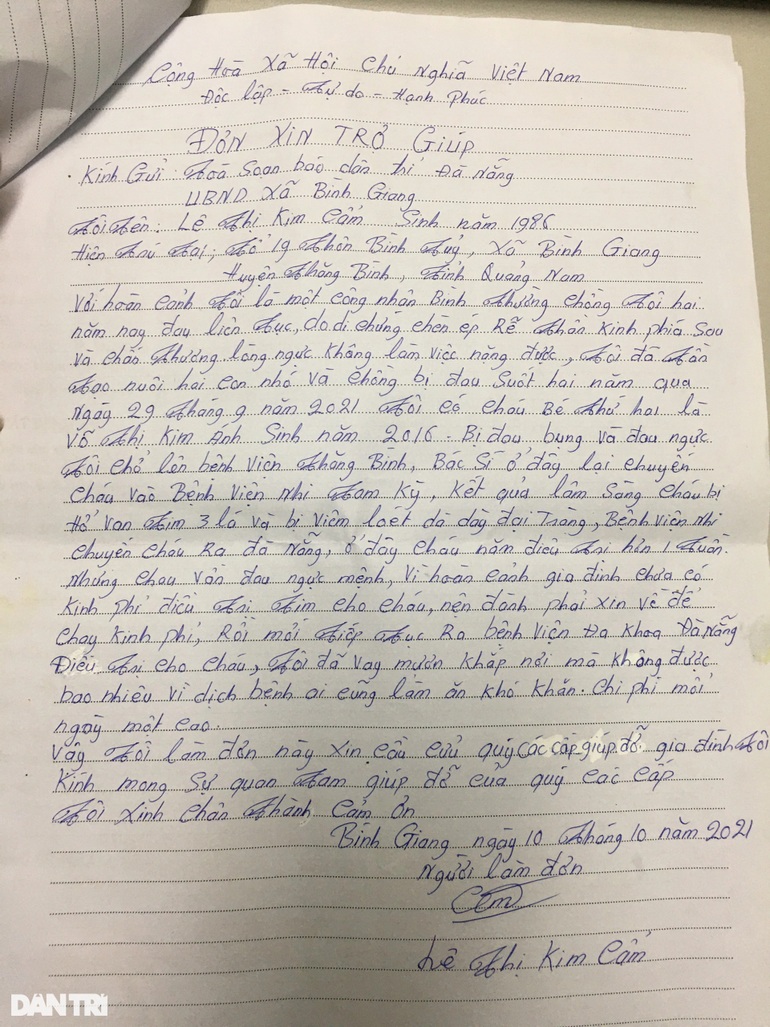 Cộng Hoà Xã Hội Chủ Nghĩa Việt Nam
Độc lập - Tự do - Hạnh Phúc
ĐƠN XIN TRỞ GIÚP
Kính Gửi: Toà Soạn báo dân trí Đà Nẵng
UBND Xã Bình Giang
Tôi Tên: Lê Thị Kim Cẩm Sinh năm 1986
Hiện Trú Tại; Tổ 19 Thôn Bình Tuý, Xã Bình Giang
Huyện Thăng Bình, Tỉnh Quảng Nam
Với hoàn cảnh Tôi là một công nhân Bình Thường chồng Tôi hai
năm nay đau liên Tục, do di chứng chèn ép Rễ Thần Kinh phía Sau
và chấn Thương lồng ngực không làm việc nặng được, Tôi đã Tần
Tạo nuôi hai con nhỏ và chồng bị đau Suốt hai năm qua
ngày 29 Tháng 9 năm 2021 Tôi có cháu Bé Thứ hai là
Võ Thị Kim Ánh Sinh năm 2016. Bị đau bụng và đau ngực.
Tôi chở lên bệnh viện Thăng Bình, Bác Sĩ ở đây lại chuyển
Cháu vào Bệnh Viện Nhi Tam Kỳ, Kết quả lâm Sàng cháu bị
Hở Van Tim 3 lá và bị Viêm loét dạ dày đại Tràng, Bệnh viện Nhi
chuyển Cháu Ra đà Nẵng, ở đây cháu nằm điều Trị hơn 1 Tuần.
Nhưng cháu vẫn đau ngực mệnh, vì hoàn cảnh gia đình chưa có
Kinh phí điều Trị Tim cho cháu, nên đành phải xin về để
chạy kinh phí, Rồi mới Tiếp Tục Ra bệnh viện Đa khoa Đà Nẵng
Điều Trị cho cháu, Tôi đã vay mượn khắp nơi mà không được
bao nhiêu vì dịch bệnh ai cũng làm ăn khó khăn. Chi phí mỗi
ngày một cao.
Vậy Tôi làm đơn này xin cầu cứu quý các cấp giúp đỡ gia đình Tôi
Kính mong Sự quan Tâm giúp đỡ của quý các cấp
Tôi Xinh Chân Thành Cảm Ơn
Bình Giang ngày 10 Tháng 10 năm 2021
Người làm đơn
Lê Thị Kim Cẩm
DÂN TRÍ